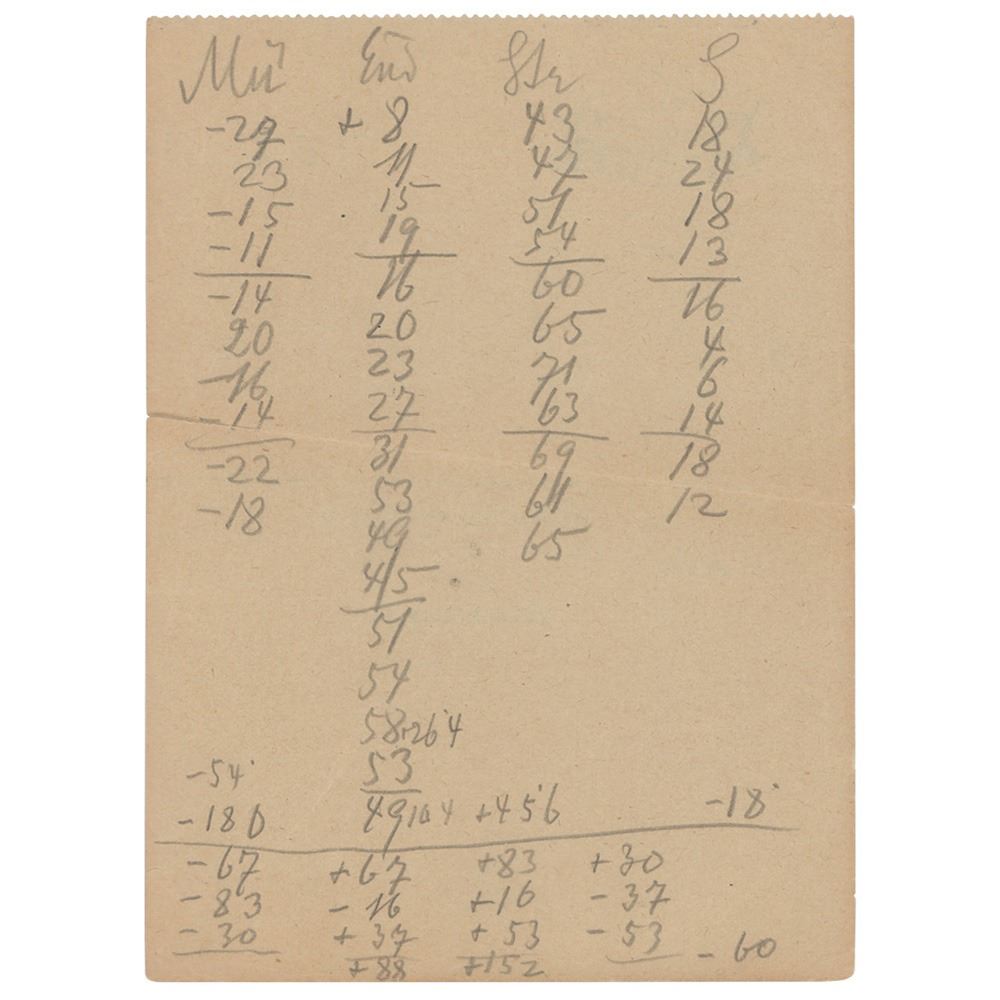 Mü Eud Ste S
-27 + 8 43 18
23 11 47 24
-15 15 51 18
-11 19 54 13
-14 16 60 16
20 20 65 4
-16 23 71 6
-14 27 63 14
-22 31 69 18
-18 53 61 12
49 65
45
51
54
58 264
53
-54
-180 49 104 +456 -18
-67 +67 +83 +30
-83 -16 +16 -37
-30 +37 +53 -53
+88 +152 -60